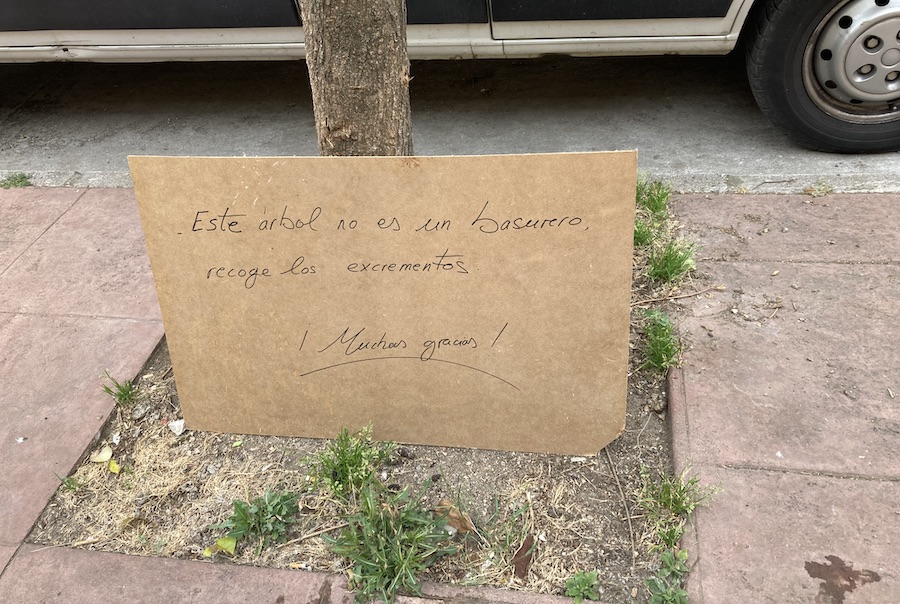 Este árbol no es un basurero,
recoge los excrementos.
¡Muchas gracias!